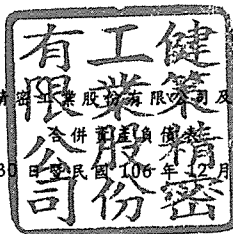 健策精密
工業股份
有限公司
密工業股份有限公司及
合併資產負債表
30日及民國106年12月